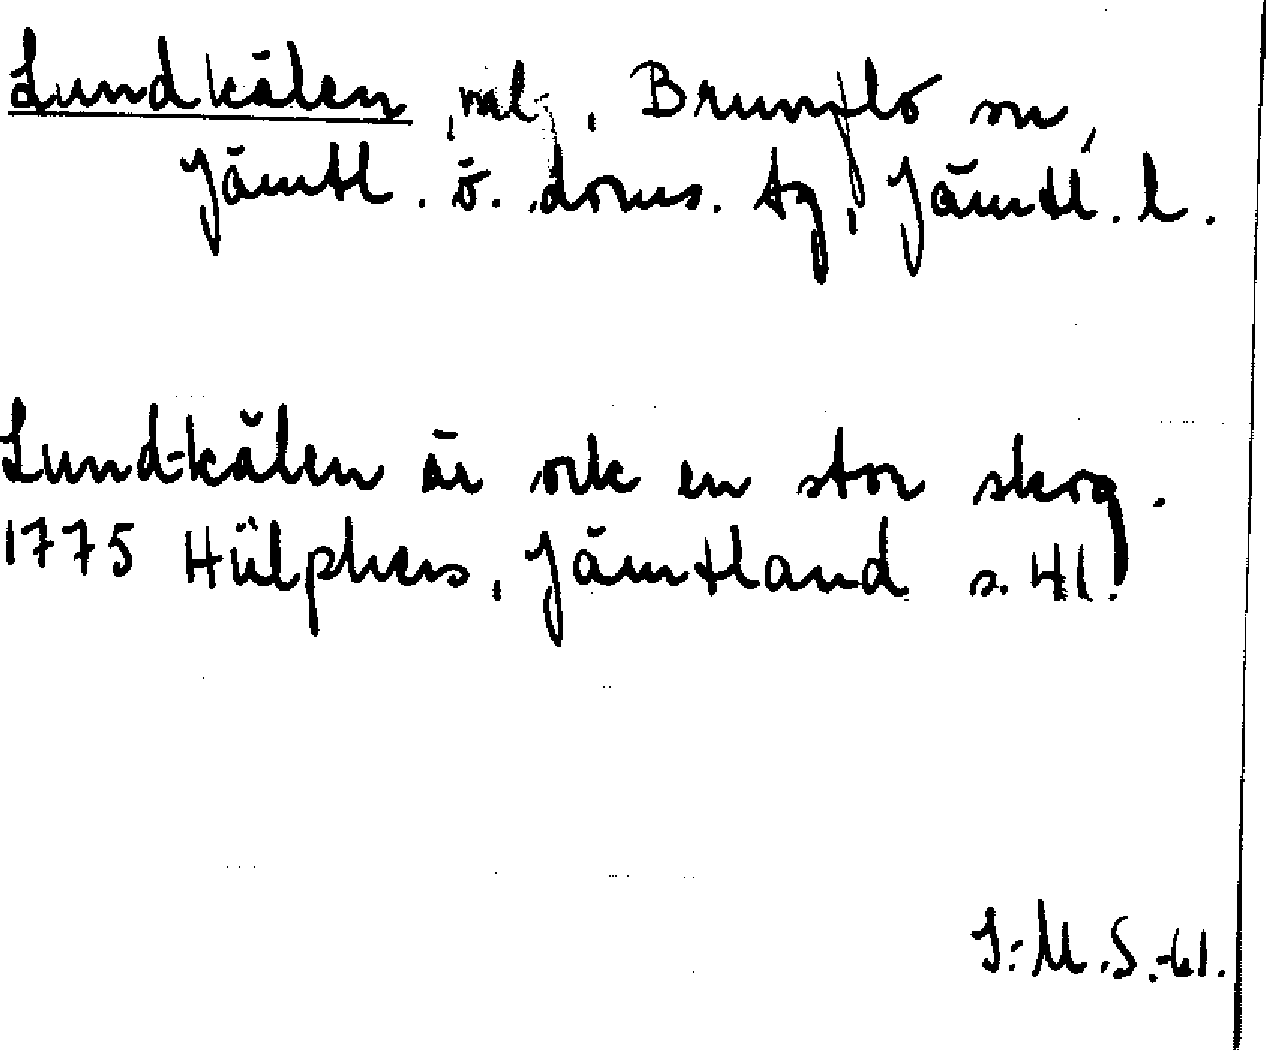 Lundkälen, nat., Brunflo sn,
Jämtl. ö. doms. tg, Jämtl. l.
Lund-kälen är ock en stor skog.
1775 Hülphers, Jämtland s. 41.
I.-M.S.-61.